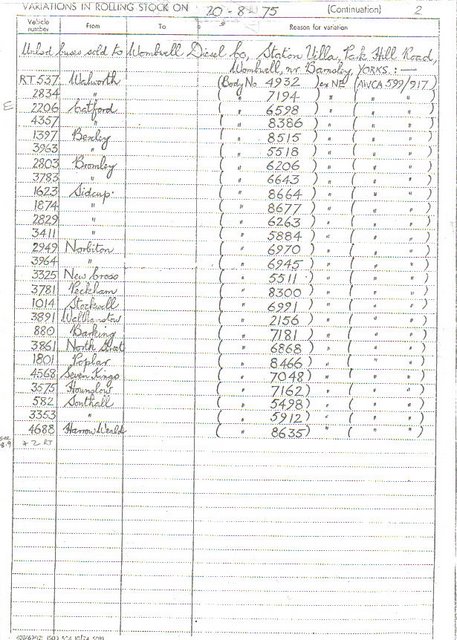 VARIATIONS IN ROLLING STOCK ON 20-8-75 (Continuation) 2
Vehicle number From To Reason for variation
buses sold to Wombwell Diesel Co, Station Villa, Park Hill Road,
Wombwell, nr Barnsley, YORKS :—
RT 537 Walworth (Body No 4932) ex NE (AWCA 599/917)
2834 " ( " 7194 ) " ( " " )
E 2206 Catford ( " 6598 ) " ( " " )
4357 " ( " 8386 ) " ( " " )
1397 Bexley ( " 8515 ) " ( " " )
3963 " ( " 5518 ) " ( " " )
2803 Bromley ( " 6206 ) " ( " " )
3783 " ( " 6643 ) " ( " " )
1623 Sidcup ( " 8664 ) " ( " " )
1874 " ( " 8677 ) " ( " " )
2829 " ( " 6263 ) " ( " " )
3411 " ( " 5884 ) " ( " " )
2949 Norbiton ( " 6970 ) " ( " " )
3964 " ( " 6945 ) " ( " " )
3325 New Cross ( " 5511 ) " ( " " )
3781 Peckham ( " 8300 ) " ( " " )
1014 Stockwell ( " 6991 ) " ( " " )
3891 Walthamstow ( " 2156 ) " ( " " )
880 Barking ( " 7181 ) " ( " " )
3861 North Street ( " 6868 ) " ( " " )
1801 Poplar ( " 8466 ) " ( " " )
4568 Seven Kings ( " 7048 ) " ( " " )
3575 Hounslow ( " 7162 ) " ( " " )
582 Southall ( " 5498 ) " ( " " )
3353 " ( " 5912 ) " ( " " )
4688 Harrow Weald ( " 8635 ) " ( " " )
RT